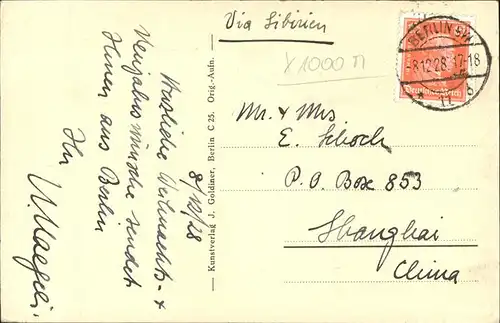 Via Sibirien
x 1000 M
BERLIN SW
-8.12.28.17-18
* 11 b
Deutsches Reich
Mr. & Mrs
E. Schoch
P. O. Box 853
Shanghai
China
Kunstverlag J. Goldiner, Berlin C 25. Orig.-Aufn.
8/12/28
Herzliche Weihnachts- &
Neujahrswünsche sendet
Ihnen aus Berlin
Ihr